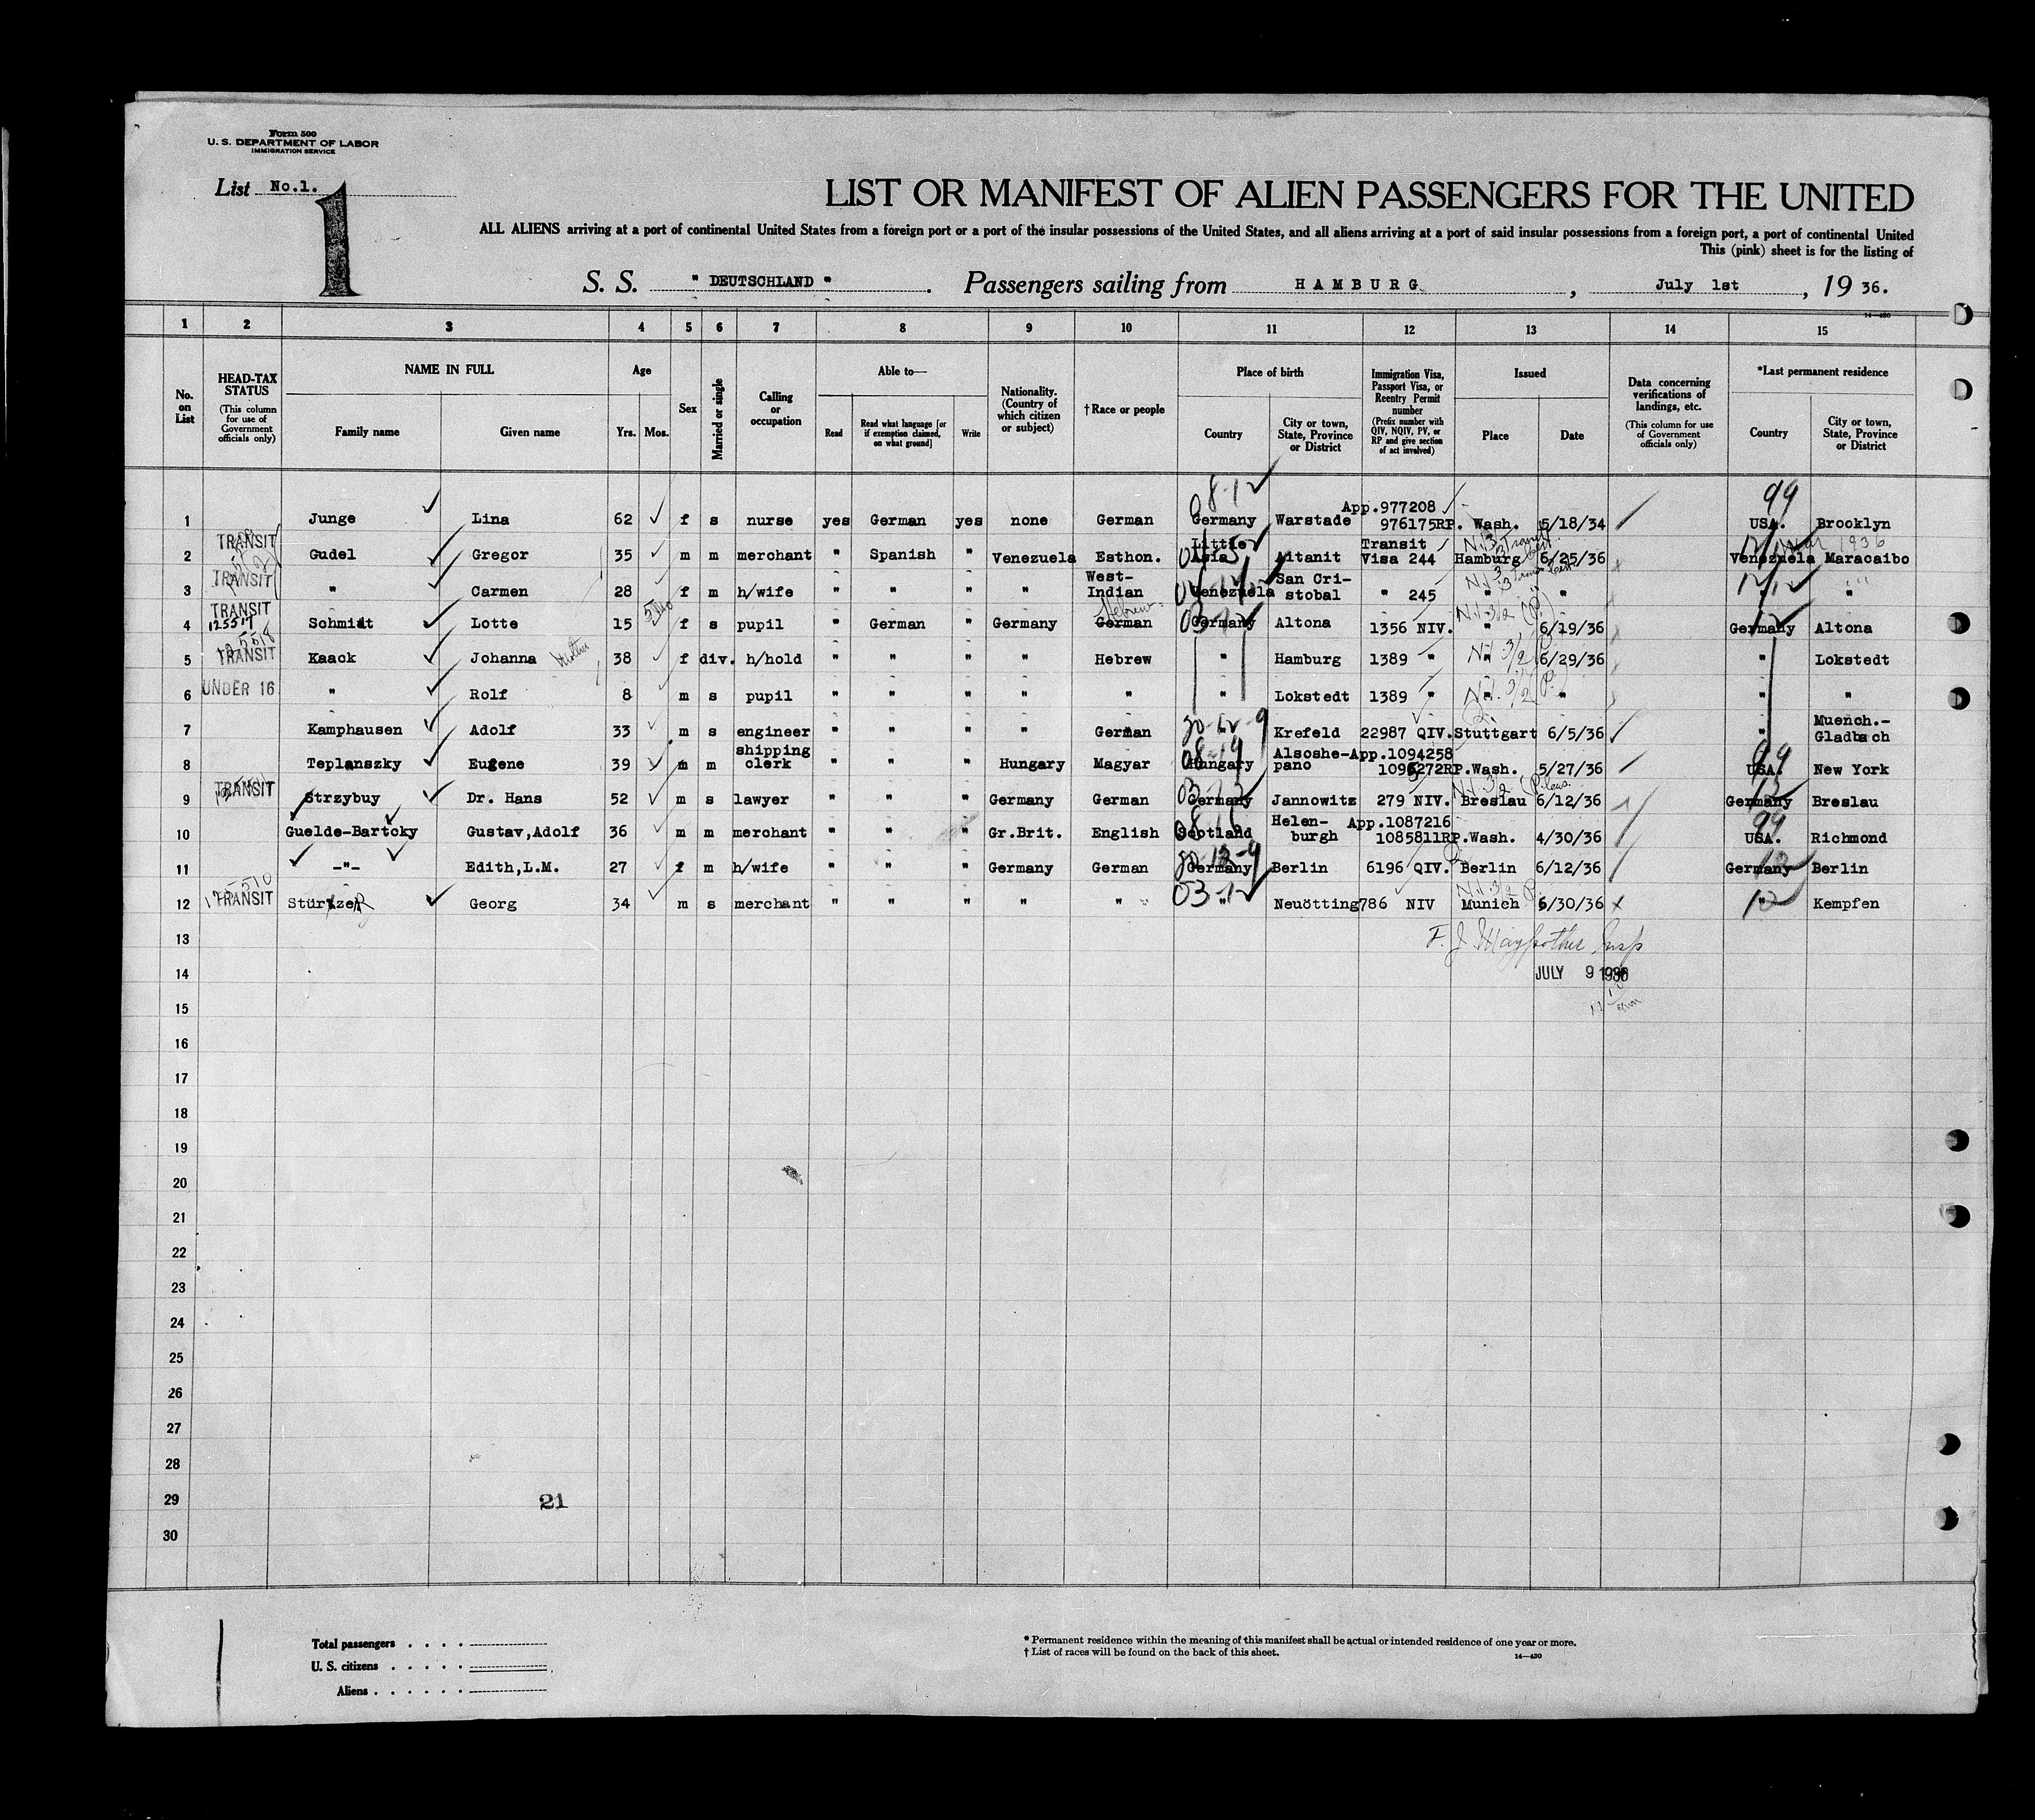 Form 500
U. S. DEPARTMENT OF LABOR
IMMIGRATION SERVICE
List No.1.
1
LIST OR MANIFEST OF ALIEN PASSENGERS FOR THE UNITED
ALL ALIENS arriving at a port of continental United States from a foreign port or a port of the insular possessions of the United States, and all aliens arriving at a port of said insular possessions from a foreign port, a port of continental United
This (pink) sheet is for the listing of
S. S. " DEUTSCHLAND " . Passengers sailing from HAMBURG , July 1st , 19 36.
14—430
1 2 3 4 5 6 7 8 9 10 11 12 13 14 15
No. on List
HEAD-TAX STATUS
(This column for use of Government officials only)
NAME IN FULL
Family name Given name
Age
Yrs. Mos.
Sex
Married or single
Calling or occupation
Able to—
Read
Read what language [or if exemption claimed, on what ground]
Write
Nationality. (Country of which citizen or subject)
†Race or people
Place of birth
Country
City or town, State, Province or District
Immigration Visa, Passport Visa, or Reentry Permit number
(Prefix number with QIV, NQIV, PV, or RP and give section of act involved)
Issued
Place Date
Data concerning verifications of landings, etc.
(This column for use of Government officials only)
*Last permanent residence
Country
City or town, State, Province or District
08-12 99
1 Junge Lina 62 f s nurse yes German yes none German Germany Warstade App.977208 976175RP. Wash. 5/18/34 USA. Brooklyn
2 TRANSIT Gudel Gregor 35 m m merchant " Spanish " Venezuela Esthon. Little Asia Aitanit Transit Visa 244 Hamburg 6/25/36 Venezuela Maracaibo
1936
3 TRANSIT " Carmen 28 f m h/wife " " " " West-Indian Venezuela San Cri-stobal " 245 " " " "
4 TRANSIT 125517 Schmidt Lotte 15 f s pupil " German " Germany German Hebrew Germany Altona 1356 NIV. " 6/19/36 Germany Altona
5 TRANSIT Kaack Johanna Mother 38 f div. h/hold " " " " Hebrew " Hamburg 1389 " " 6/29/36 " Lokstedt
6 UNDER 16 " Rolf 8 m s pupil " " " " " " Lokstedt 1389 " " " " "
7 Kamphausen Adolf 33 m s engineer " " " " German " Krefeld 22987 QIV. Stuttgart 6/5/36 " Muench.-Gladbach
8 Teplanszky Eugene 39 m m shipping clerk " " " Hungary Magyar Hungary Alsoshe-pano App.1094258 1095272RP. Wash. 5/27/36 USA. New York
9 TRANSIT Strzybuy Dr. Hans 52 m s lawyer " " " Germany German Germany Jannowitz 279 NIV. Breslau 6/12/36 Germany Breslau
10 Guelde-Bartcky Gustav,Adolf 36 m m merchant " " " Gr.Brit. English Scotland Helen-burgh App.1087216 1085811RP. Wash. 4/30/36 USA. Richmond
11 -"- Edith,L.M. 27 f m h/wife " " " Germany German Germany Berlin 6196 QIV. Berlin 6/12/36 Germany Berlin
12 TRANSIT Stürtzer Georg 34 m s merchant " " " " " " Neuötting 786 NIV Munich 6/30/36 " Kempfen
13
14 JULY 9 1936
15
16
17
18
19
20
21
22
23
24
25
26
27
28
29
21
30
Total passengers . . . .
U. S. citizens . . . . .
Aliens . . . . . .
* Permanent residence within the meaning of this manifest shall be actual or intended residence of one year or more.
† List of races will be found on the back of this sheet.
14—430